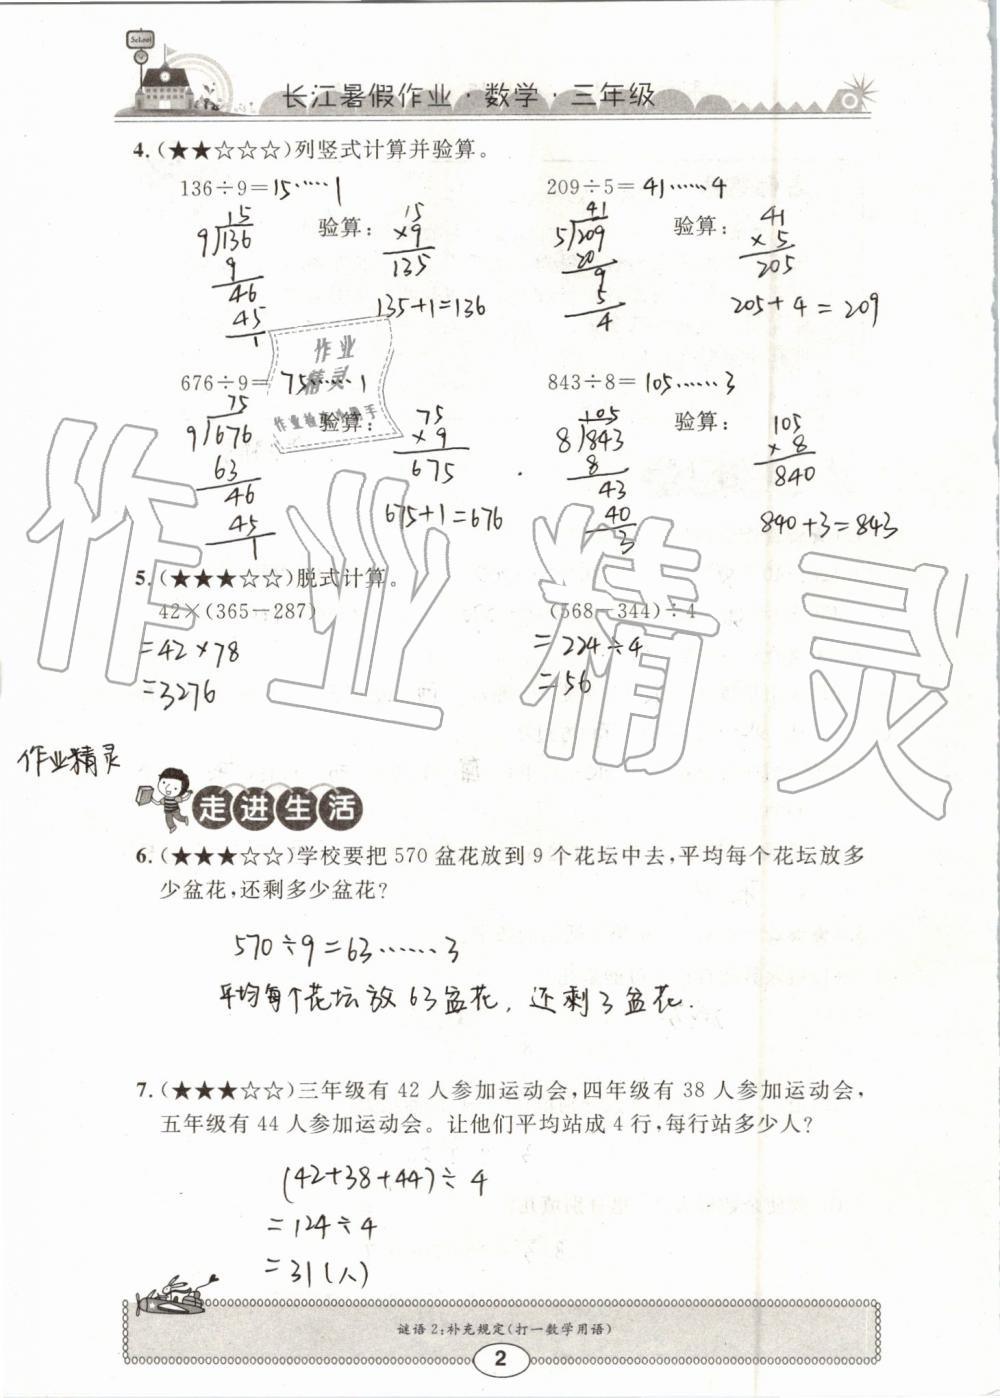 School
长江暑假作业·数学·三年级
4.(★★☆☆☆)列竖式计算并验算。
136÷9=15……1
209÷5=41……4
15
9/136
9
46
45
1
验算:
15
×9
135
135+1=136
41
5/209
20
9
5
4
验算:
41
×5
205
205+4=209
676÷9=75……1
843÷8=105……3
75
9/676
63
46
45
1
验算:
75
×9
675
675+1=676
105
8/843
8
43
40
3
验算:
105
×8
840
840+3=843
作业
精灵
作业精灵
5.(★★★☆☆)脱式计算。
42×(365-287)
=42×78
=3276
(568-344)÷4
=224÷4
=56
作业精灵
走进生活
6.(★★★☆☆)学校要把 570 盆花放到 9 个花坛中去,平均每个花坛放多
少盆花,还剩多少盆花?
570÷9=63……3
平均每个花坛放63盆花,还剩3盆花.
7.(★★★☆☆)三年级有 42 人参加运动会,四年级有 38 人参加运动会,
五年级有 44 人参加运动会。让他们平均站成 4 行,每行站多少人?
(42+38+44)÷4
=124÷4
=31(人)
谜语 2:补充规定(打一数学用语)
2